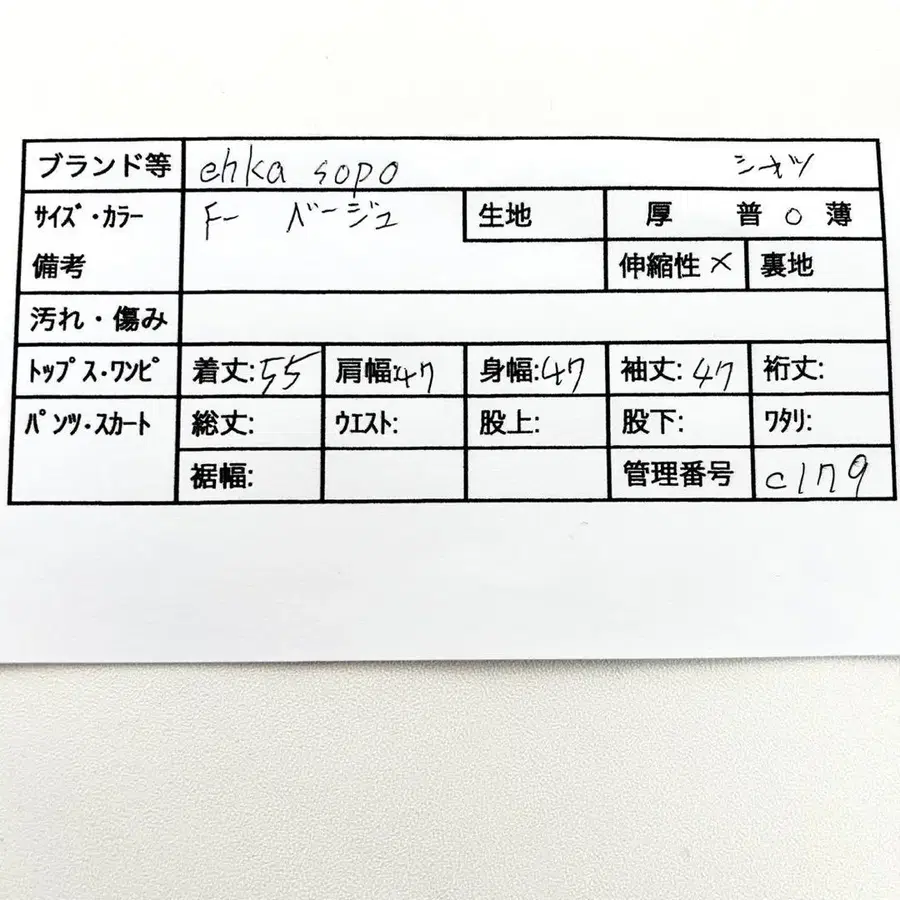 ブランド等 ehka sopo シャツ
サイズ・カラー F- ベージュ 生地 厚 普 ○ 薄
備考 伸縮性 × 裏地
汚れ・傷み
トップス・ワンピ 着丈:55 肩幅:47 身幅:47 袖丈:47 裄丈:
パンツ・スカート 総丈: ウエスト: 股上: 股下: ワタリ:
裾幅: 管理番号 c179